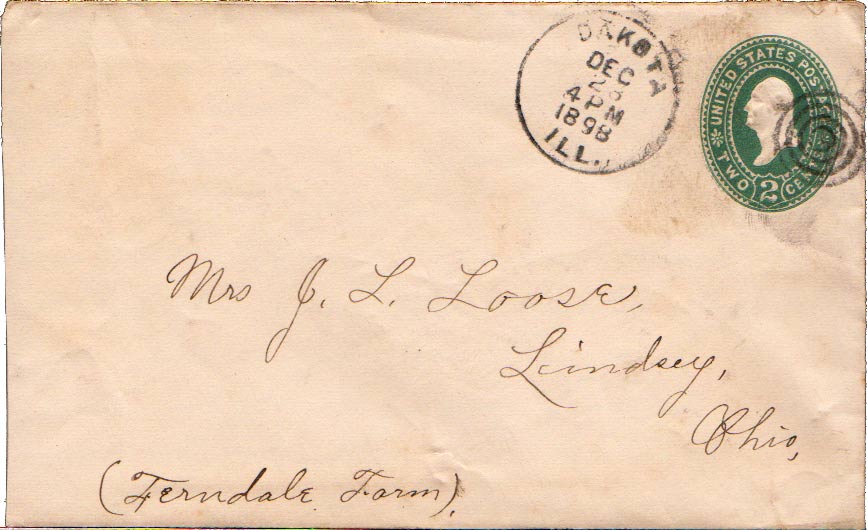 DAKOTA
DEC
4 PM
1898
ILL.
UNITED STATES POSTAGE
TWO 2 CENTS
Mrs J. L. Loose,
Lindsey,
Ohio,
(Ferndale Farm).